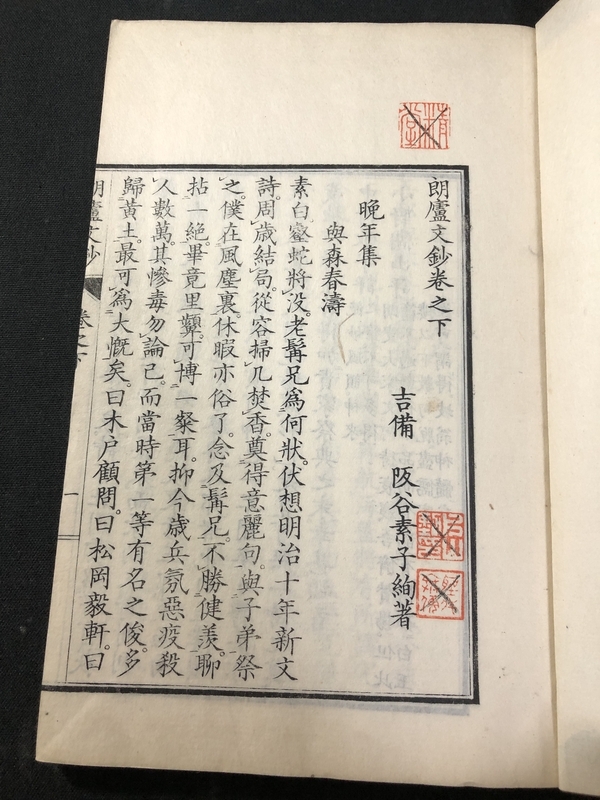 朗廬文鈔卷之下
吉備　阪谷素子絢著
晚年集
與森春濤
素白臺蛇將沒。老髯兄爲何狀。伏想明治十年新文
詩。周歲結局。從容掃几焚香。奠得意麗句。與子弟祭
之。僕在風塵裏。休暇亦俗了。念及髯兄。不勝健羨。聊
拈一絕。畢竟里顰。可博一粲耳。抑今歲兵氛惡疫殺
人數萬。其慘毒勿論已。而當時第一等有名之俊。多
歸黃土。最可爲大慨矣。曰木户顧問。曰松岡毅軒。曰
朗廬文鈔
卷之下
一